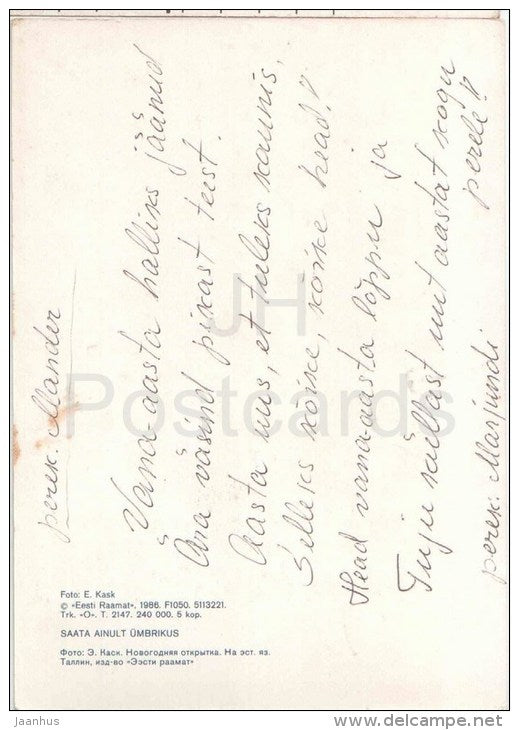 perek. Mander
Vana-aasta halliks jäänud
Ära väsind pikast teist.
Aasta uus, et tuleks kaunis,
Selleks kõike, kõike head!!
Head vana-aasta lõppu ja
Tuju küllast uut aastat kogu
perele!!
perek. Marjundi
Foto: E. Kask
© «Eesti Raamat», 1986. F1050. 5113221.
Trk. «O». T. 2147. 240 000. 5 kop.
SAATA AINULT ÜMBRIKUS
Фото: Э. Каск. Новогодняя открытка. На эст. яз.
Таллин, изд-во «Ээсти раамат»
JH
Postcards
jaanhus
www.delcampe.net